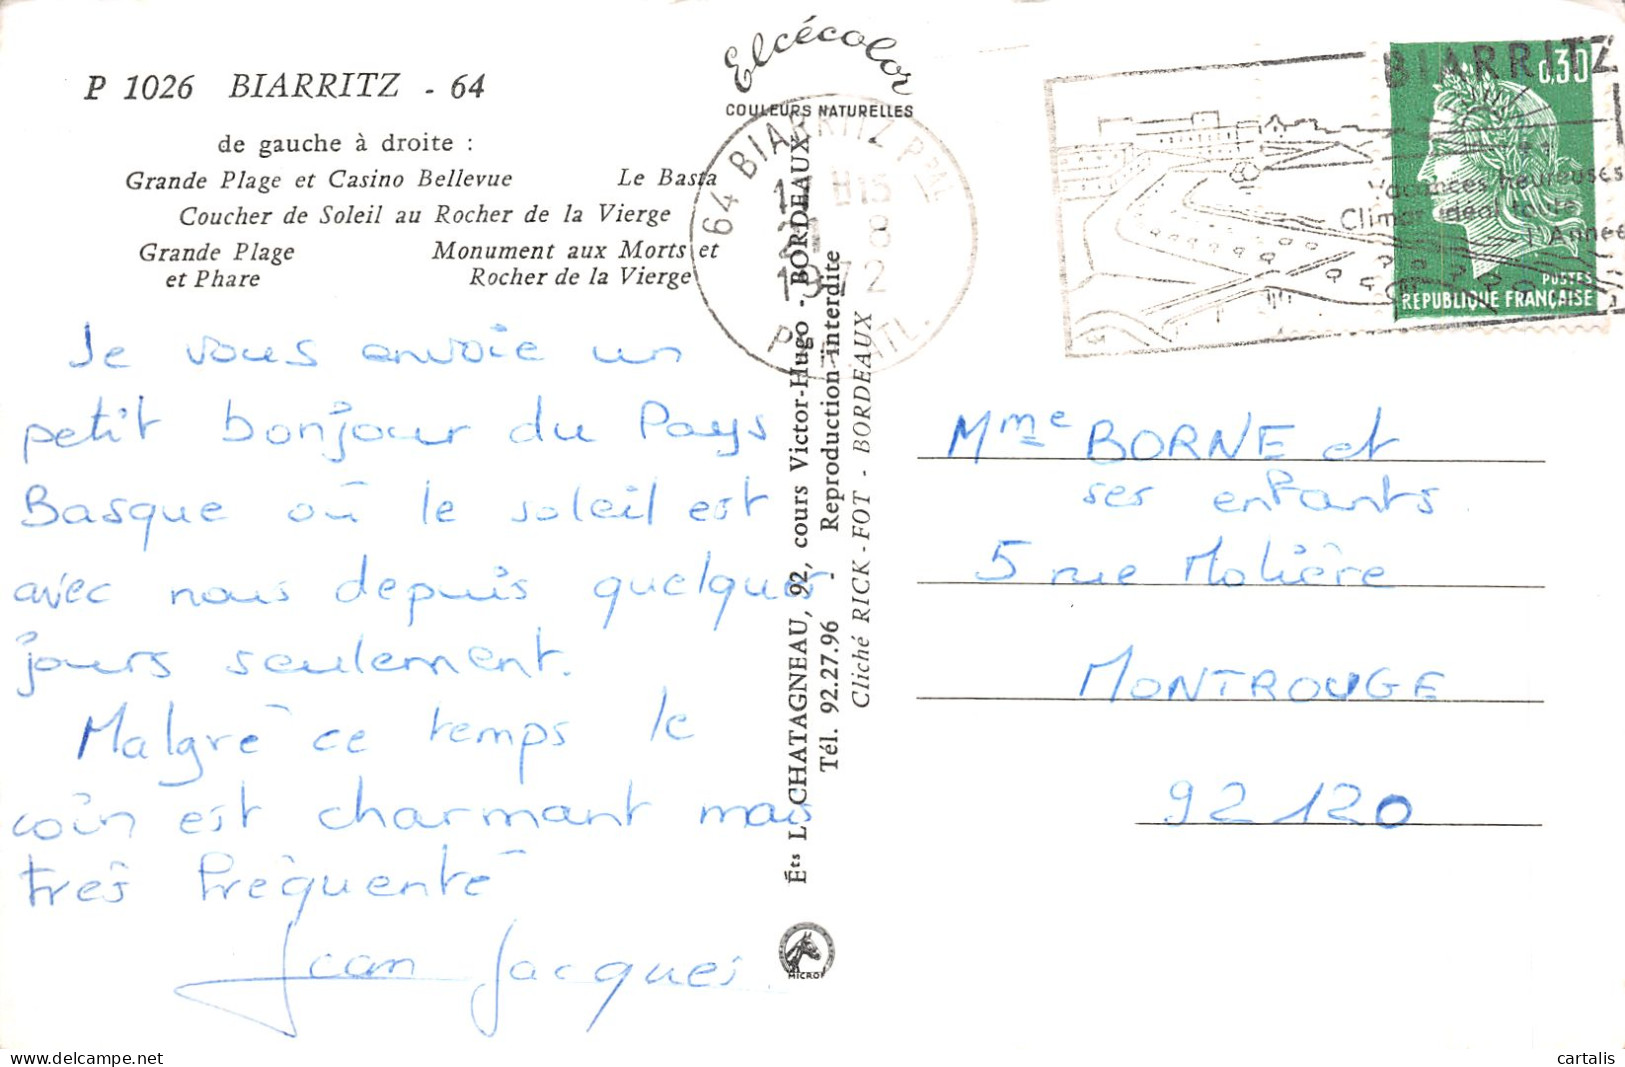 P 1026 BIARRITZ - 64
de gauche à droite :
Grande Plage et Casino Bellevue Le Basta
Coucher de Soleil au Rocher de la Vierge
Grande Plage Monument aux Morts et
et Phare Rocher de la Vierge
Je vous envoie un
petit bonjour du Pays
Basque où le soleil est
avec nous depuis quelques
jours seulement.
Malgré ce temps le
coin est charmant mais
très fréquenté
Jean Jacques.
Elcécolor
COULEURS NATURELLES
64 BIARRITZ Pal
H15
8
1972
Éts L. CHATAGNEAU, 92, cours Victor-Hugo - BORDEAUX
Tél. 92.27.96 - Reproduction interdite
Cliché RICK-FOT - BORDEAUX
MICRO
BIARRITZ
Vacances heureuses
Climat idéal toute
l'Année
0,30
POSTES
REPUBLIQUE FRANÇAISE
Mme BORNE et
ses enfants
5 rue Molière
MONTROUGE
92120
delcampe.net
cartalis